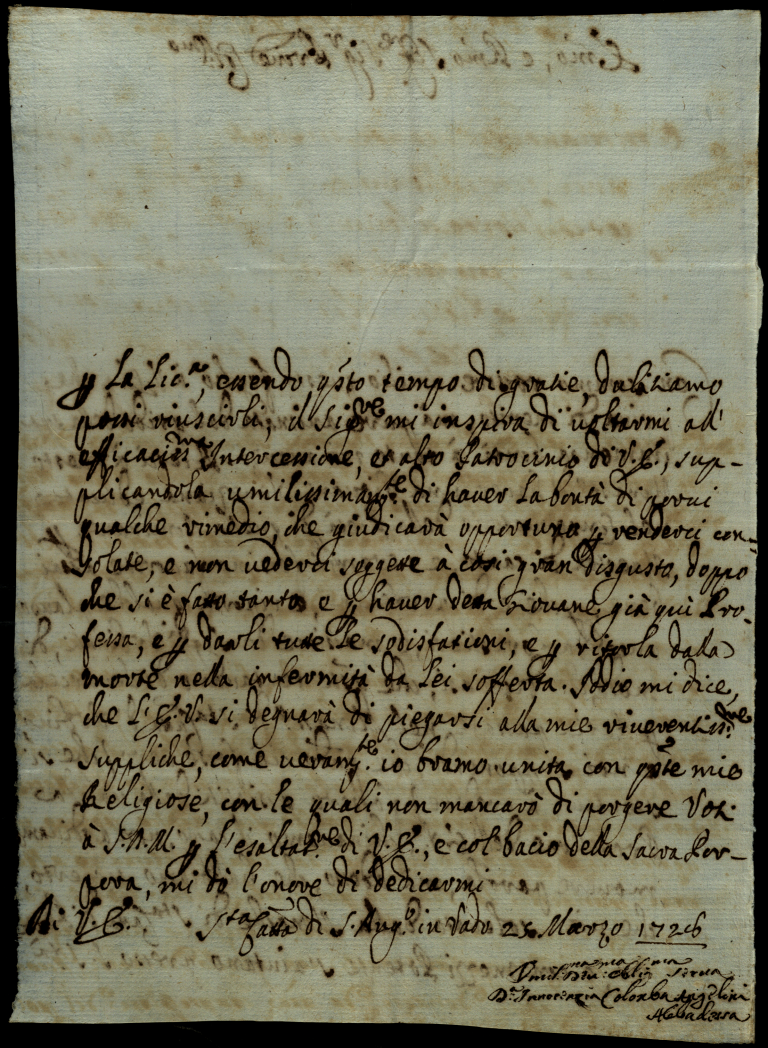 ꝑ La Lic.ª, essendo q̃sto tempo di gratie, dubitiamo
possi riuscirli; il Sig.re mi inspira di voltarmi all'
efficaciss.ma Intercessione, et alto Patrocinio di V.E., sup-
plicandola umilissimam.te di haver la bontà di porvi
qualche rimedio, che giudicarà opportuno ꝑ renderci con-
solate, e non vederci soggette à cosi gran disgusto, doppo
che si è fatto tanto e ꝑ haver detta Giovane già quì Pro-
fessa, e ꝑ darli tutte le sodisfationi, e ꝑ ritorla dalla
morte nella infermità da lei sofferta. Iddio mi dice,
che L'E.V. si degnarà di piegarsi alla mie riverentiss.me
suppliche, come veram.te io bramo unita con q̃ste mie
Religiose, con le quali non mancarò di porgere Voti
à S.D.M. ꝑ l'esaltat.ne di V.E., e col bacio della Sacra Por-
pora, mi dò l'onore di dedicarmi
Di V.E. S.ta Catt.a di S. Ang.o in Vado 25 Marzo 1726
Umil.ma Div.ma Oblig.ma Serva
D.a Innocenzia Colomba Angelini
Abbadessa